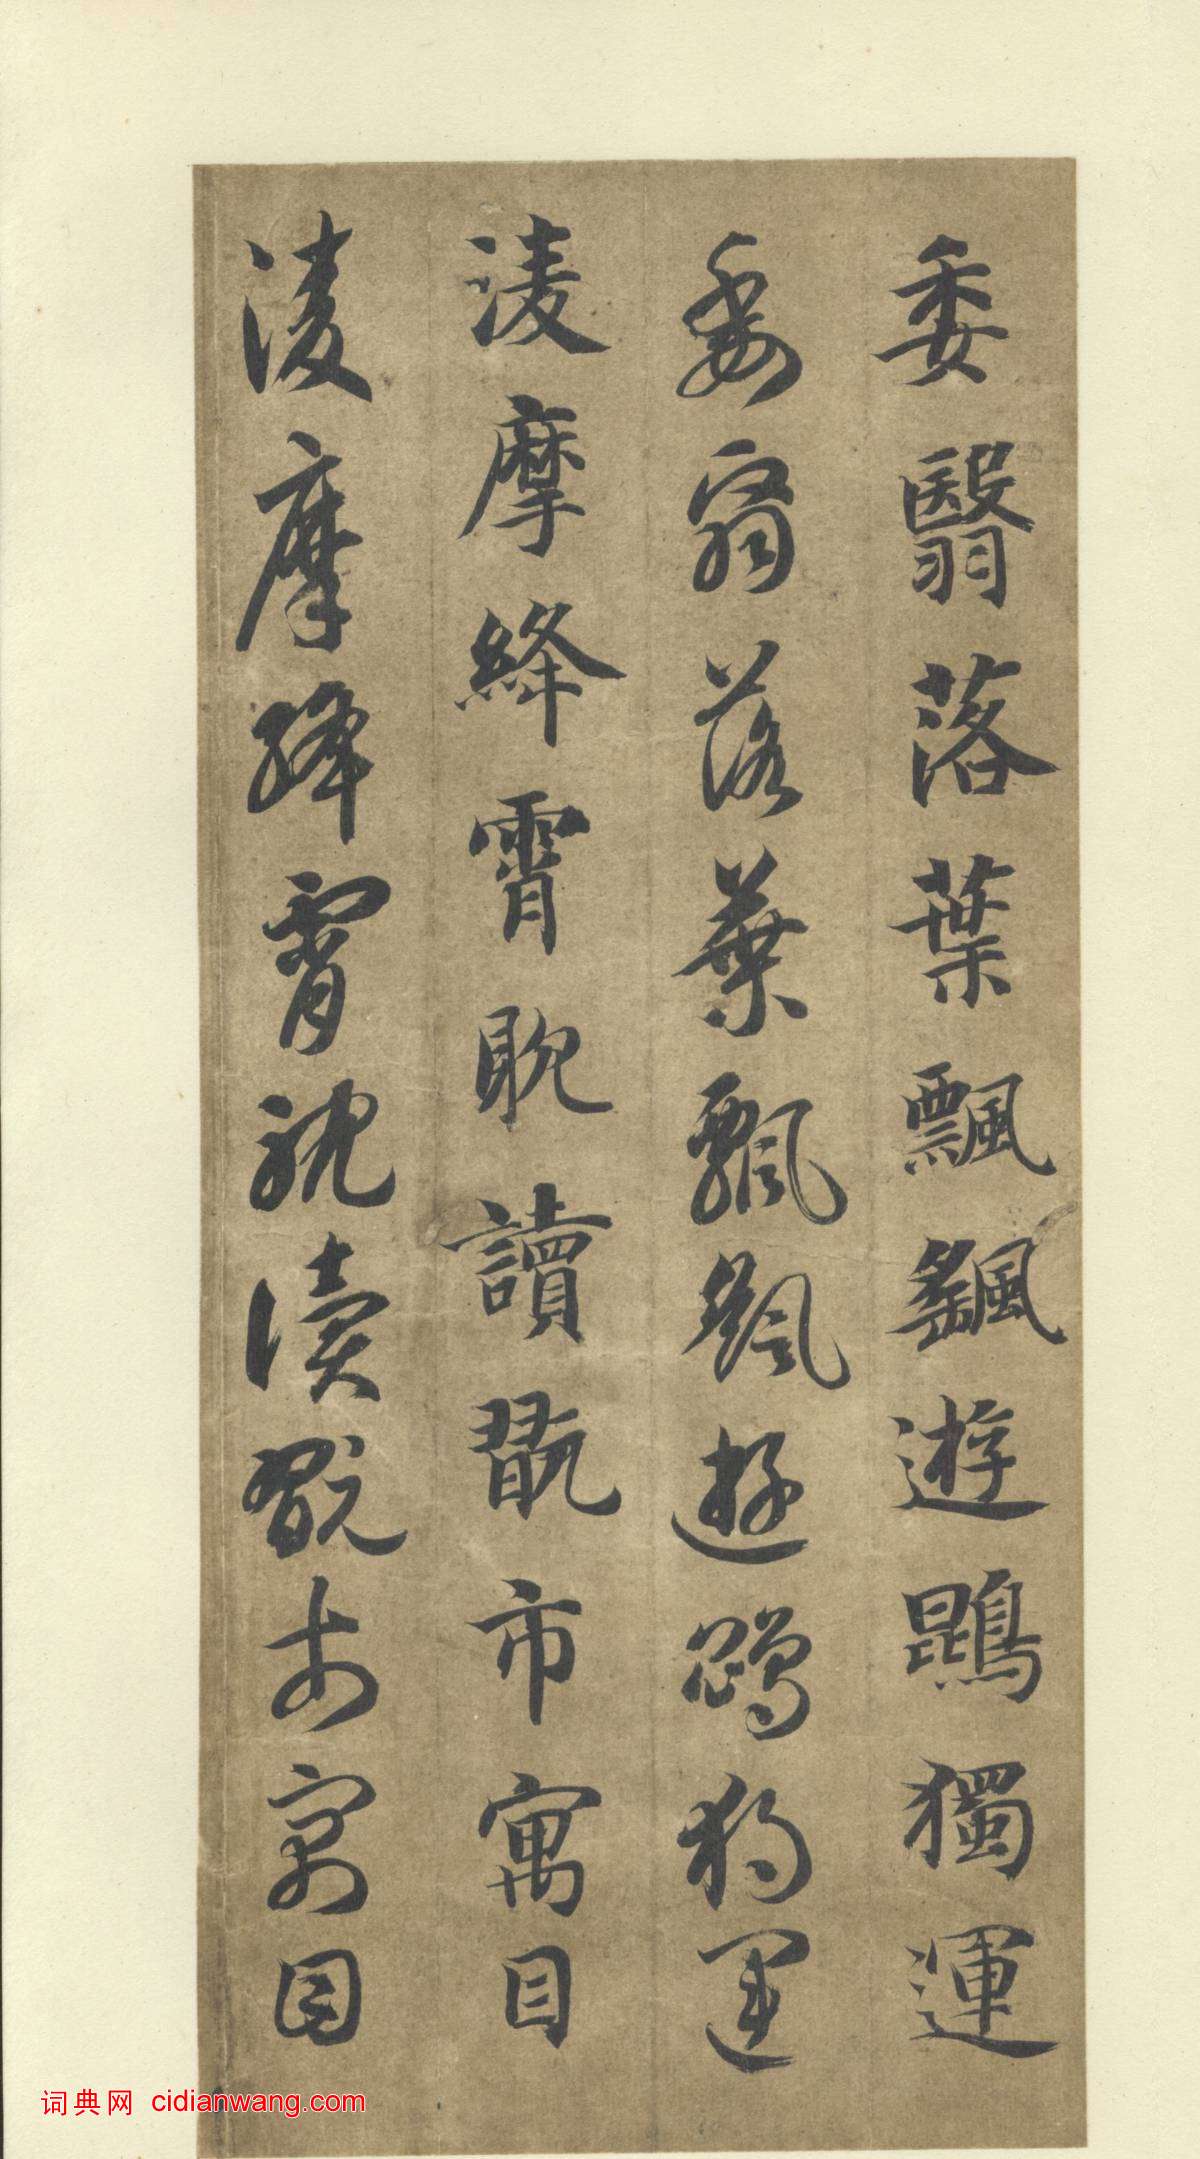 委翳落葉飄颻遊鵾獨運
委翳落葉飄颻遊鵾獨運
淩摩絳霄耽讀翫市寓目
淩摩絳霄耽讀翫市寓目
词典网 cidianwang.com